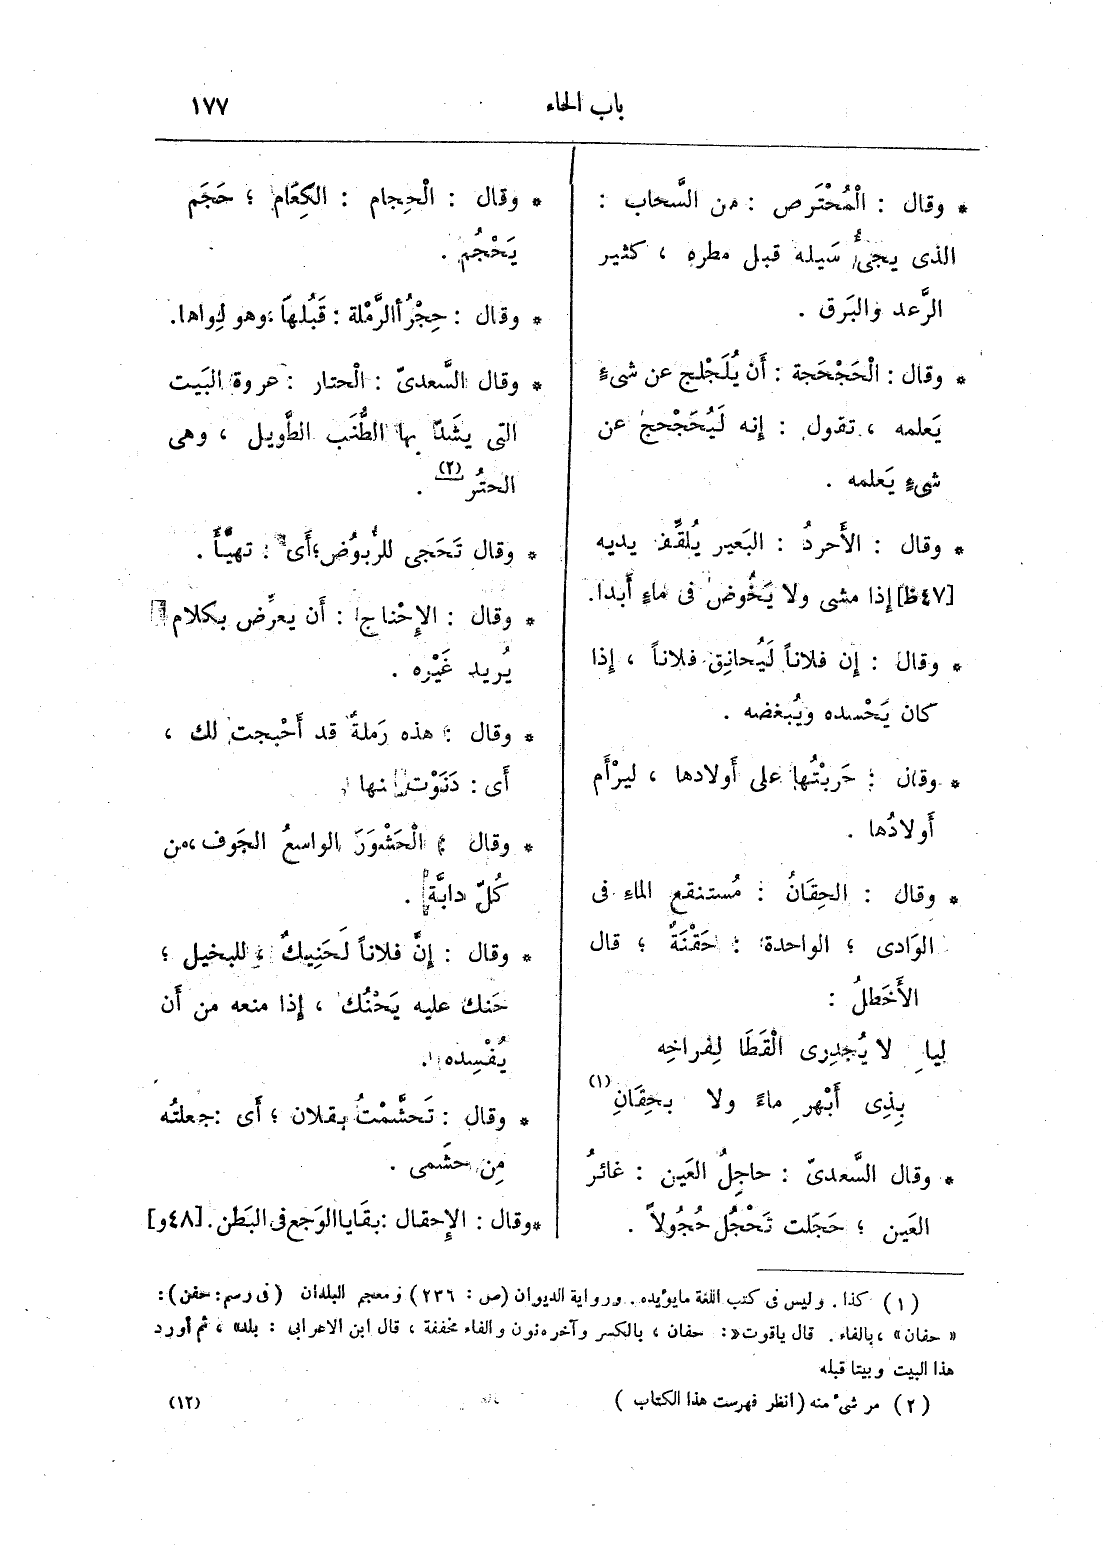 باب الحاء ١٧٧
* وقال : الْمُحْتَرِص : من السَّحاب :
الذى يجىُّ سَيله قبل مطره ، كثير
الرَّعد والبَرق .
* وقال : الْحَجْحَجة : أَن يُلَجْلج عن شىءٍ
يَعلمه ، تقول : إنه لَيُحَجْحج عن
شىءٍ يَعلمه .
* وقال : الأَحردُ : البَعير يُلقِّف يديه
[٤٧ظ] إذا مشى ولا يَخُوض فى ماءٍ أَبدا.
* وقال : إن فلاناً لَيُحانِق فلاناً ، إذا
كان يَحْسده ويُبغضه .
* وقال : حَربْتُها على أَولادها ، ليرْأَم
أَولادُها .
* وقال : الحِقَانُ : مُستنقع الماء فى
الوَادى ؛ الواحدة : حَقْنَةٌ ؛ قال
الأَخَطلُ :
لا يُجدِرى الْقَطَا لِفراخِه
بِذِى أَبْهرِ ماءً ولا بحِقَانِ (١)
* وقال السَّعدىّ : حاجِلُ العَين : غائرُ
العَين ؛ حَجَلت تَحْجُل حُجُولاً .
* وقال : الْحِجام : الكِعَام ؛ حَجَم
يَحْجُم .
* وقال : حِجْرُ الرَّمْلة : قَبُلهاَ ؛ وهو لِواها.
* وقال السَّعدىّ : الْحتار : عروة البَيت
التى يشدّ بها الطُّنَب الطَّويل ، وهى
الحتُر (٢) .
* وقال تَحَجى للرُّبوُض ؛ أَى : تهيَّأَ .
* وقال : الإِحْناج : أَن يعرِّض بكلام
يُريد غَيْره .
* وقال : هذه رَملةٌ قد أَحْبجت لك ،
أَى : دَنَوْت منها .
* وقال : الْحَشْوَرَ الواسعُ الجَوف ، من
كُلّ دابَّة .
* وقال : إنَّ فلاناً لَحَنِيكٌ ، للبخيل ؛
حَنك عليه يَحْنُك ، إذا منعه من أَن
يُفْسِده .
* وقال : تَحشَّمْتُ بفلان ؛ أَى : جعلتُه
مِن حشَمى .
* وقال : الإِحقال : بقَايا الوَجع فى البَطن . [٤٨و]
(١) كذا . وليس فى كتب اللغة مايؤيده . ورواية الديوان (ص : ٢٣٦) ومعجم البلدان (فى رسم : حفن) :
« حفان » ، بالفاء . قال ياقوت : « حفان ، بالكسر وآخره نون والفاء مخففة ، قال ابن الاعرابى : بلد » ، ثم أورد
هذا البيت وبيتا قبله
(٢) مر شىء منه (انظر فهرست هذا الكتاب )
(١٢)